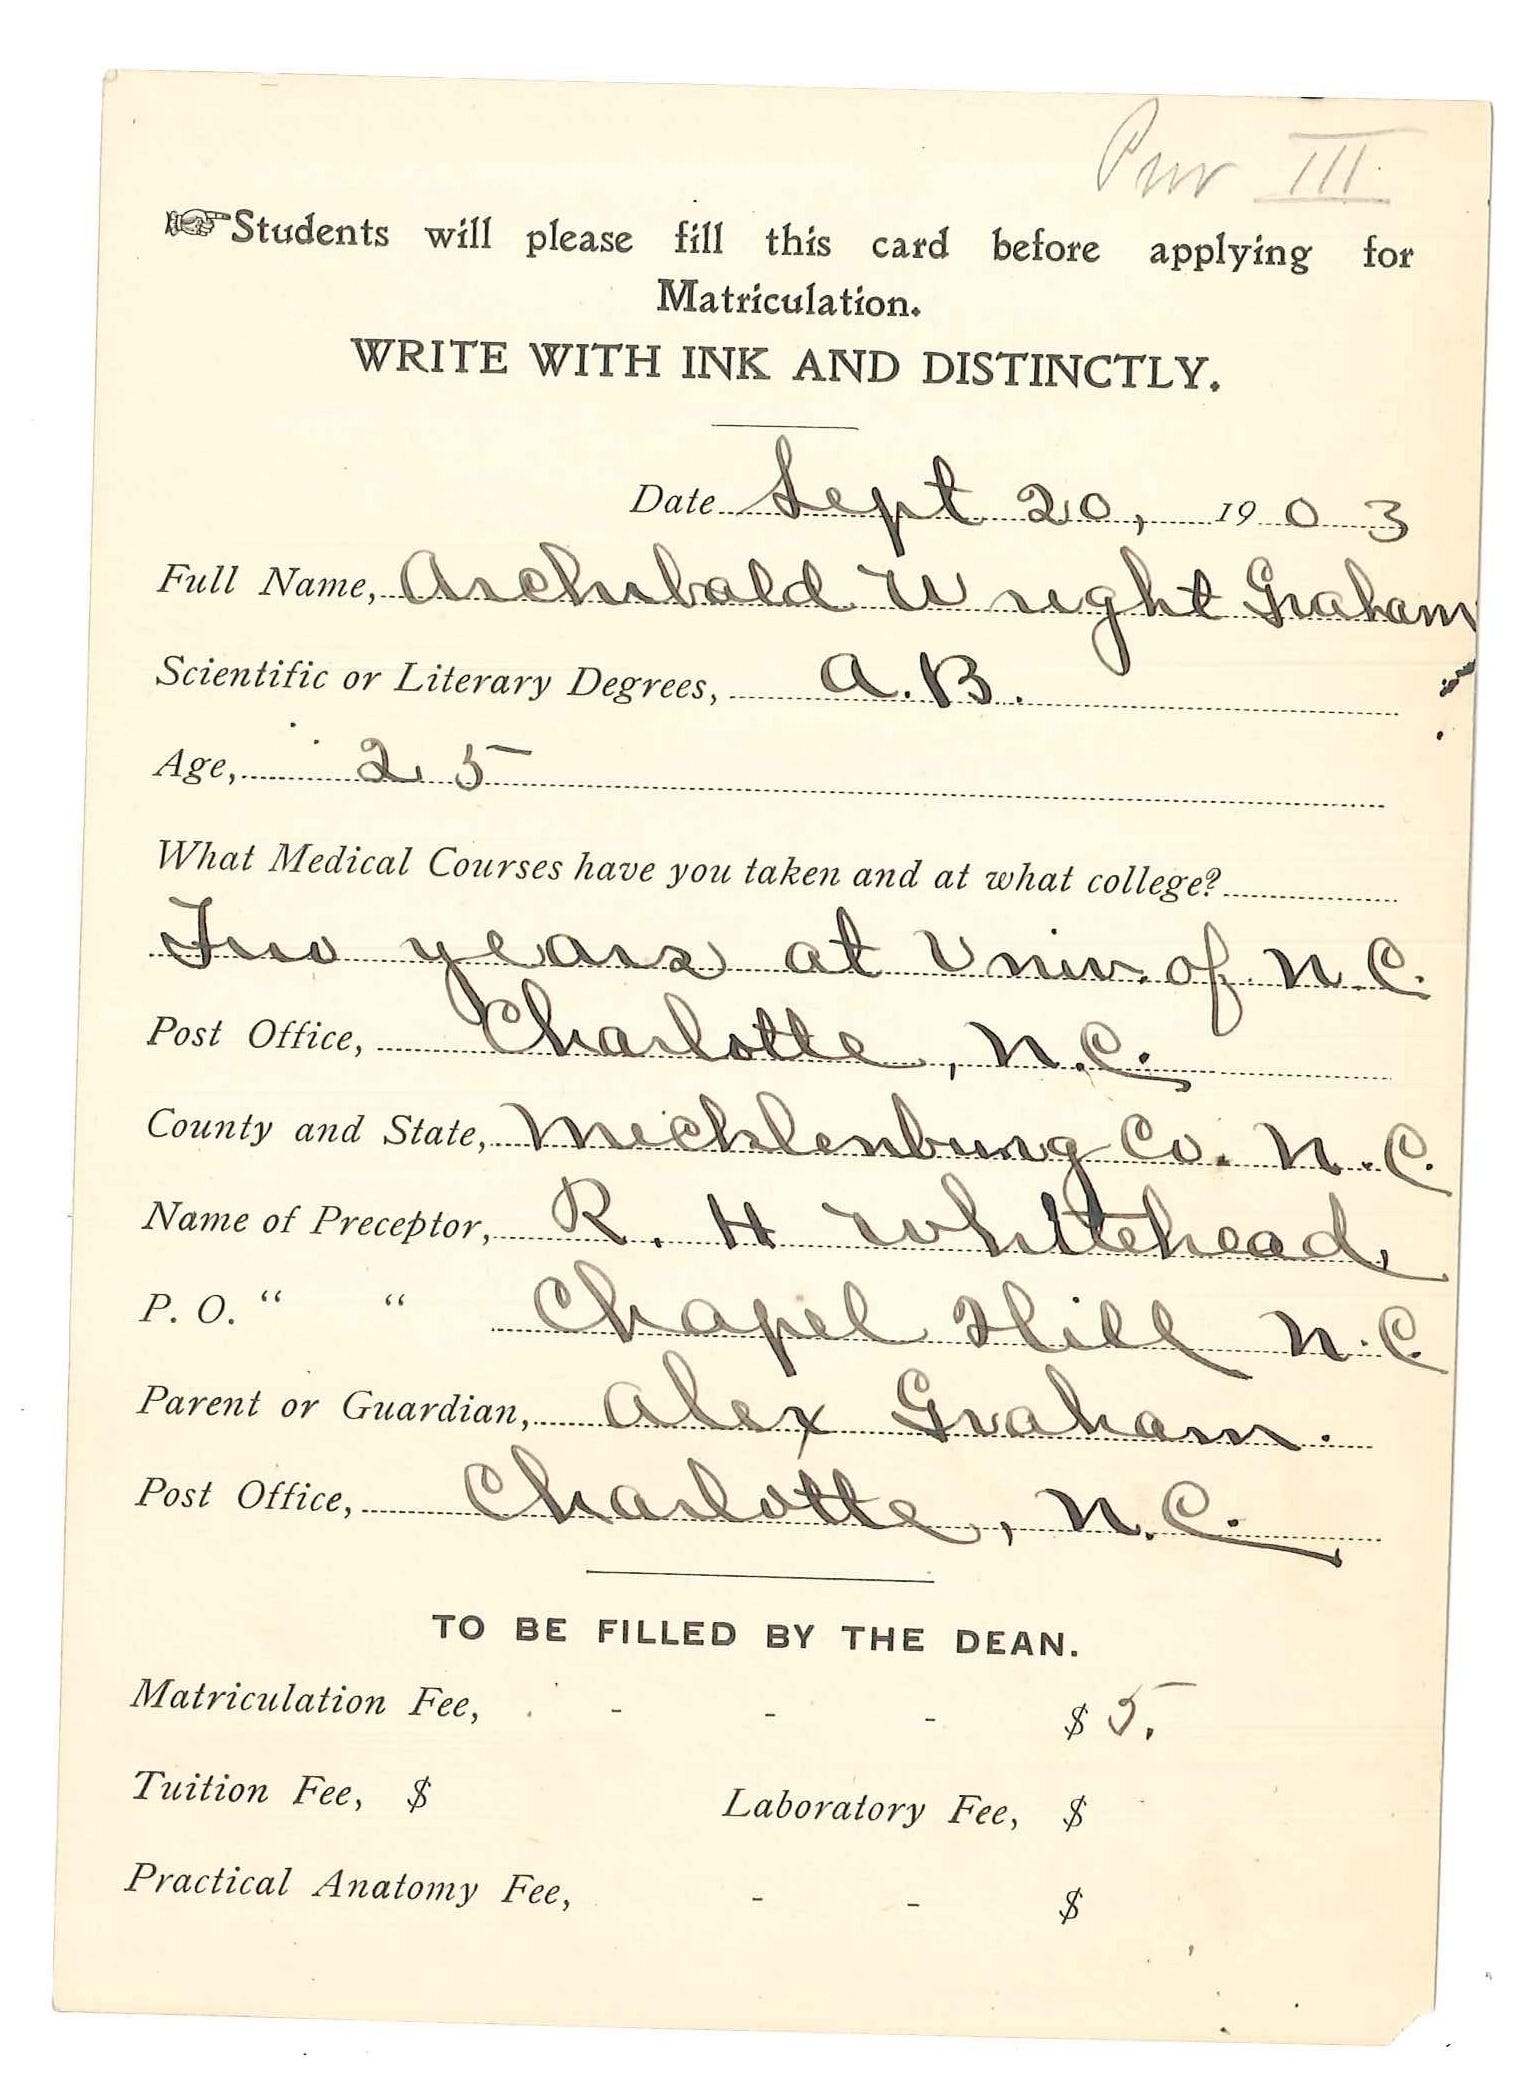 III
☞Students will please fill this card before applying for
Matriculation.
WRITE WITH INK AND DISTINCTLY.
Date Sept 20, 1903
Full Name, Archibald Wright Graham
Scientific or Literary Degrees, A.B.
Age, 25
What Medical Courses have you taken and at what college?
Two years at Univ. of N.C.
Post Office, Charlotte, N.C.
County and State, Mecklenburg Co. N.C.
Name of Preceptor, R. H Whitehead,
P. O. “ “ Chapel Hill N.C.
Parent or Guardian, Alex Graham.
Post Office, Charlotte, N.C.
TO BE FILLED BY THE DEAN.
Matriculation Fee, - - - $ 5.
Tuition Fee, $ Laboratory Fee, $
Practical Anatomy Fee, - - $